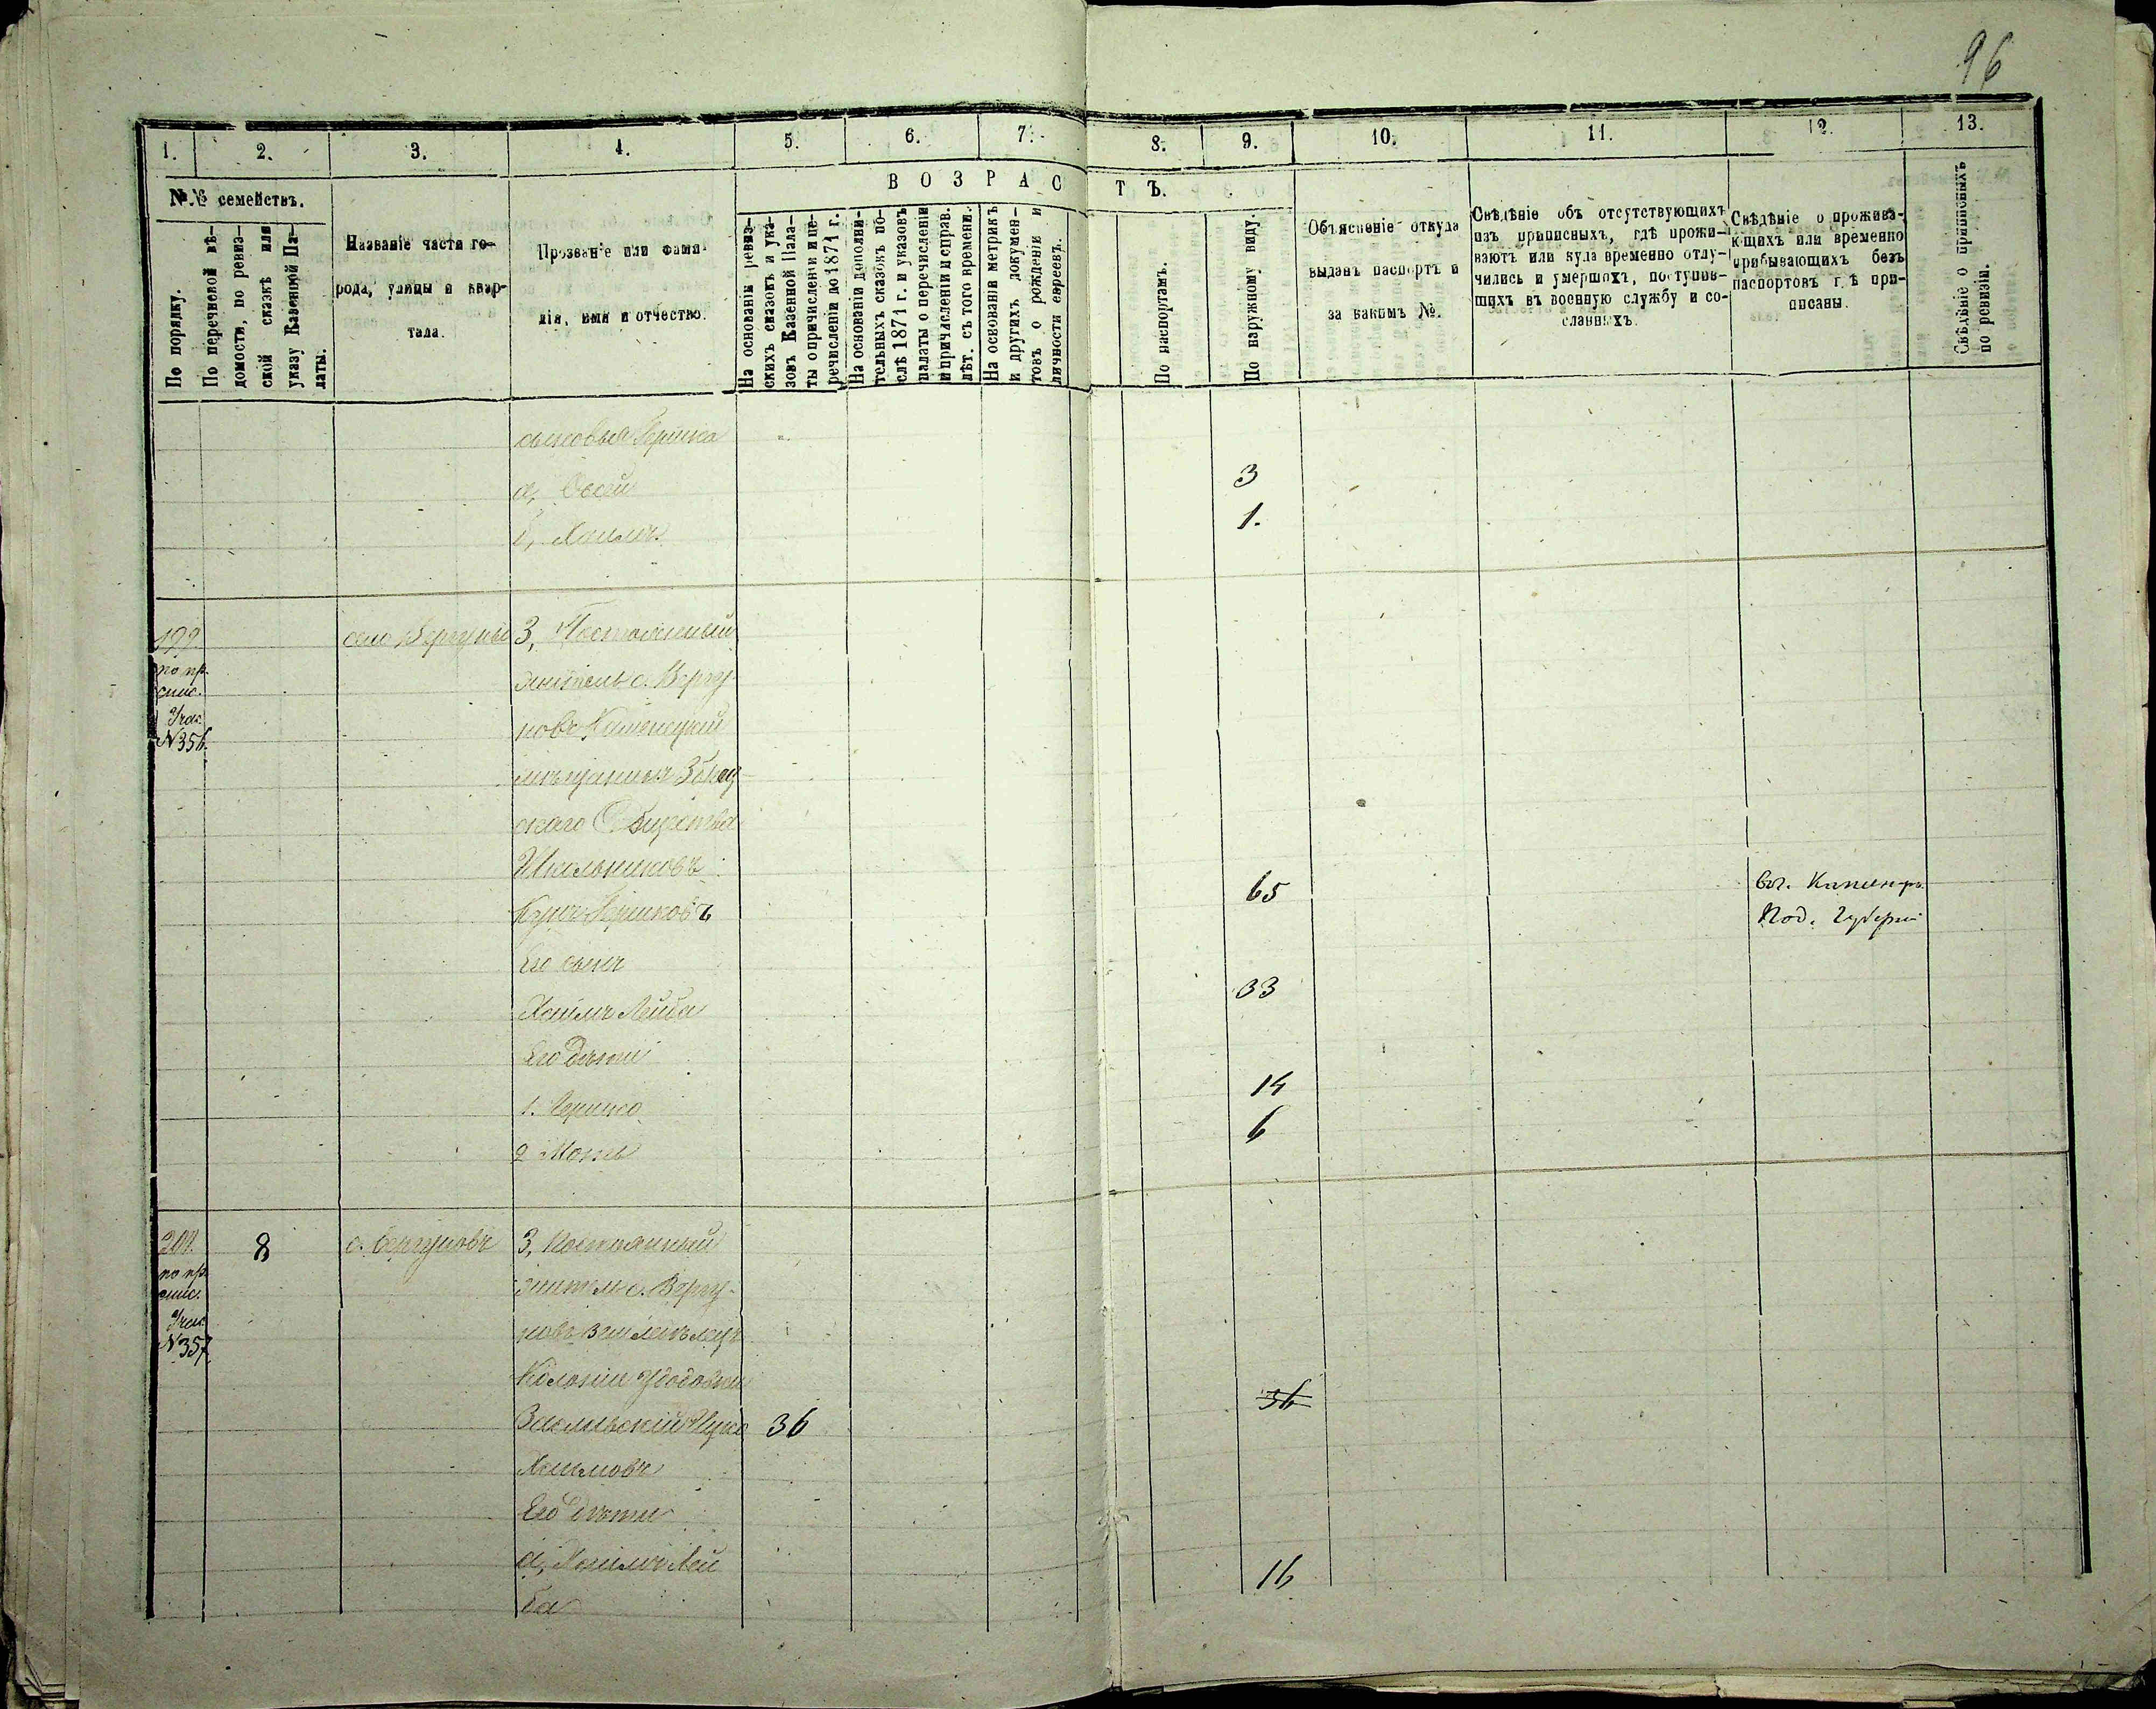 96
1.
2.
3.
4.
5.
6.
7.
8.
9.
10.
11.
12.
13.
№.№ семействъ.
По порядку.
По перечневой вѣ-
домости, по ревиз-
ской сказкѣ или
указу Казенной Па-
латы.
Названіе части го-
рода, улицы и квар-
тала.
Прозваніе или фами-
лія, имя и отчество.
ВОЗРАСТЪ.
На основаніи ревиз-
скихъ сказокъ и ука-
зовъ Казенной Пала-
ты о причисленіи и пе-
речисленіи до 1871 г.
На основаніи дополни-
тельныхъ сказокъ по-
слѣ 1871 г. и указовъ
палаты о перечисленіи
и причисленіи и справ.
лѣт. съ того времени.
На основаніи метрикъ
и другихъ докумен-
товъ о рожденіи и
личности евреевъ.
По паспортамъ.
По наружному виду.
Объясненіе откуда
выданъ паспортъ и
за какимъ №.
Свѣдѣніе объ отсутствующихъ
изъ приписныхъ, гдѣ прожи-
ваютъ или куда временно отлу-
чились и умершихъ, поступив-
шихъ въ военную службу и со-
сланныхъ.
Свѣдѣніе о прожива-
ющихъ или временно
прибывающихъ безъ
паспортовъ гдѣ при-
писаны.
Свѣдѣніе о приписныхъ
по ревизіи.
сыновья Гершка
а, 3
б, Хаимъ 1.
199. село Вергуны 3, Постоянный
по пр. житель с. Вергу-
спис.
новъ Каменецкій
№356.
мѣщанинъ
скаго Общества
Школьниковъ
Гершковъ 65
Под. Губерніи
Его сынъ
Хаимъ Лейба 33
Его дѣти
1. Гершко 14
2 6
200. 8 с. Вергуновъ 3, Постоянный
по пр. житель с. Вергу-
спис.
новъ Земледѣлецъ
№357
Колоніи
Заславскій 36 36
Хаимовъ
Его дѣти
а, Хаимъ Лей
ба 16